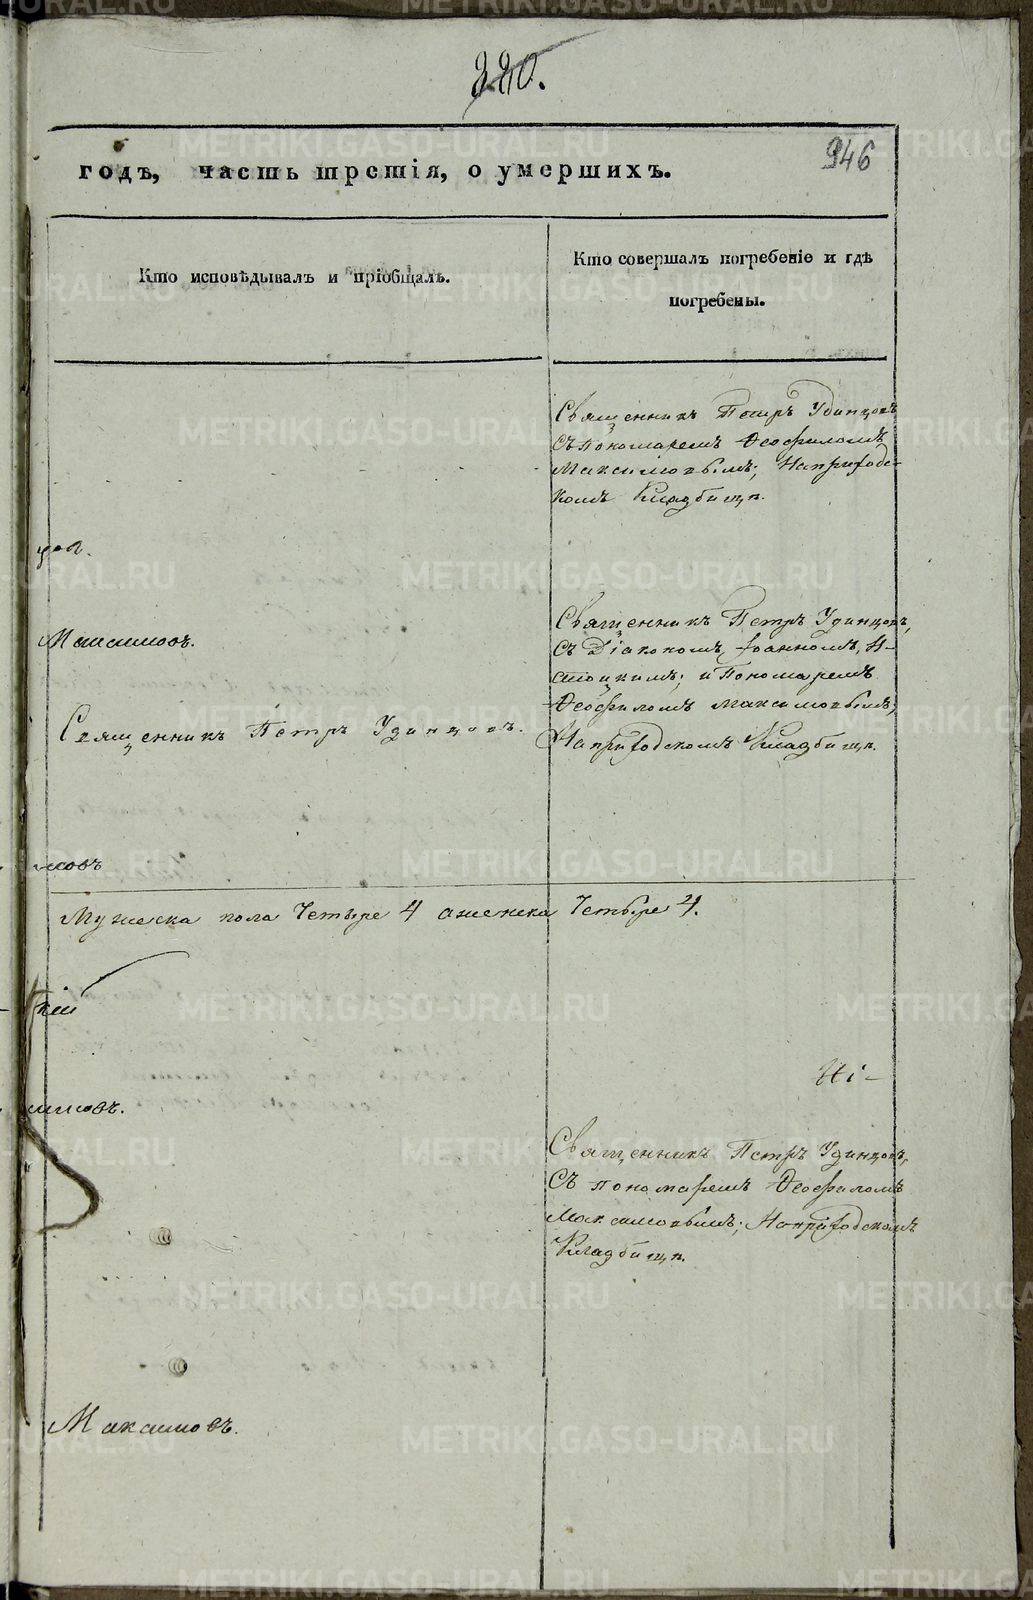 220.
946
годъ, часть третія, о умершихъ.
Кто исповѣдывалъ и пріобщалъ.
Кто совершалъ погребеніе и гдѣ
погребены.
Священникъ Петръ Удинцовъ
съ пономаремъ Ѳеофиломъ
Максимовымъ; На приходс-
комъ Кладбищѣ.
Максимовъ.
Священникъ Петръ Удинцовъ,
съ Діакономъ Іоанномъ,
и Пономаремъ
Ѳеофиломъ Максимовымъ,
На приходскомъ Кладбищѣ.
Священникъ Петръ Удинцовъ.
мовъ
Мужеска пола Четыре 4 а женска Четыре 4.
кій
Ні-
имовъ.
Священникъ Петръ Удинцовъ,
Съ пономаремъ Ѳеофиломъ
Максимовымъ; На приходскомъ
Кладбищѣ.
Максимовъ.
METRIKI.GASO-URAL.RU